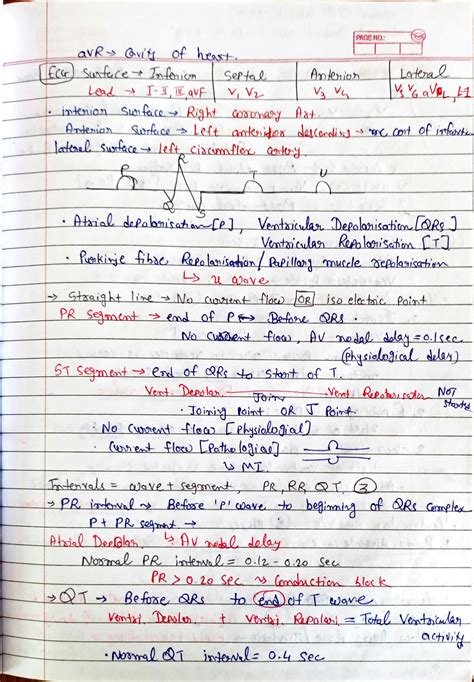 PAGE NO.:
avR → Cavity of heart.
ECG Surface → Inferior | Septal | Anterior | Lateral
Lead → I-II, III avF | V1 V2 | V3 V4 | V5 V6 aVL, L1
• inferior surface → Right coronary Art.
Anterior surface → Left anterior descending →
lateral surface → left circumflex artery.
R
P T U
Q S
• Atrial depolarisation [P], Ventricular Depolarisation [QRS]
Ventricular Repolarisation [T]
• Purkinje fibre Repolarisation / Papillary muscle repolarisation
↳ u wave
→ Straight line → No current flow OR iso electric Point
PR Segment → end of P ↔ Before QRS.
No current flow, AV nodal delay = 0.1 sec
(Physiological delay)
ST Segment → End of QRS to Start of T.
Vent. Depolar. Join Vent. Repolarisation NOT started
• Joining Point OR J Point
• No current flow [Physiological]
• Current flow [Pathological]
↳ MI.
Intervals = wave + segment, PR, RR, QT. 3
→ PR interval → Before 'P' wave to beginning of QRS complex
P + PR segment →
Atrial Depolar. ↳ AV nodal delay
Normal PR interval = 0.12 - 0.20 sec
PR > 0.20 sec → Conduction block
→ QT → Before QRS to end of T wave
Ventri. Depolar. + Ventri. Repolari. = Total Ventricular
activity
• Normal QT interval = 0.4 sec